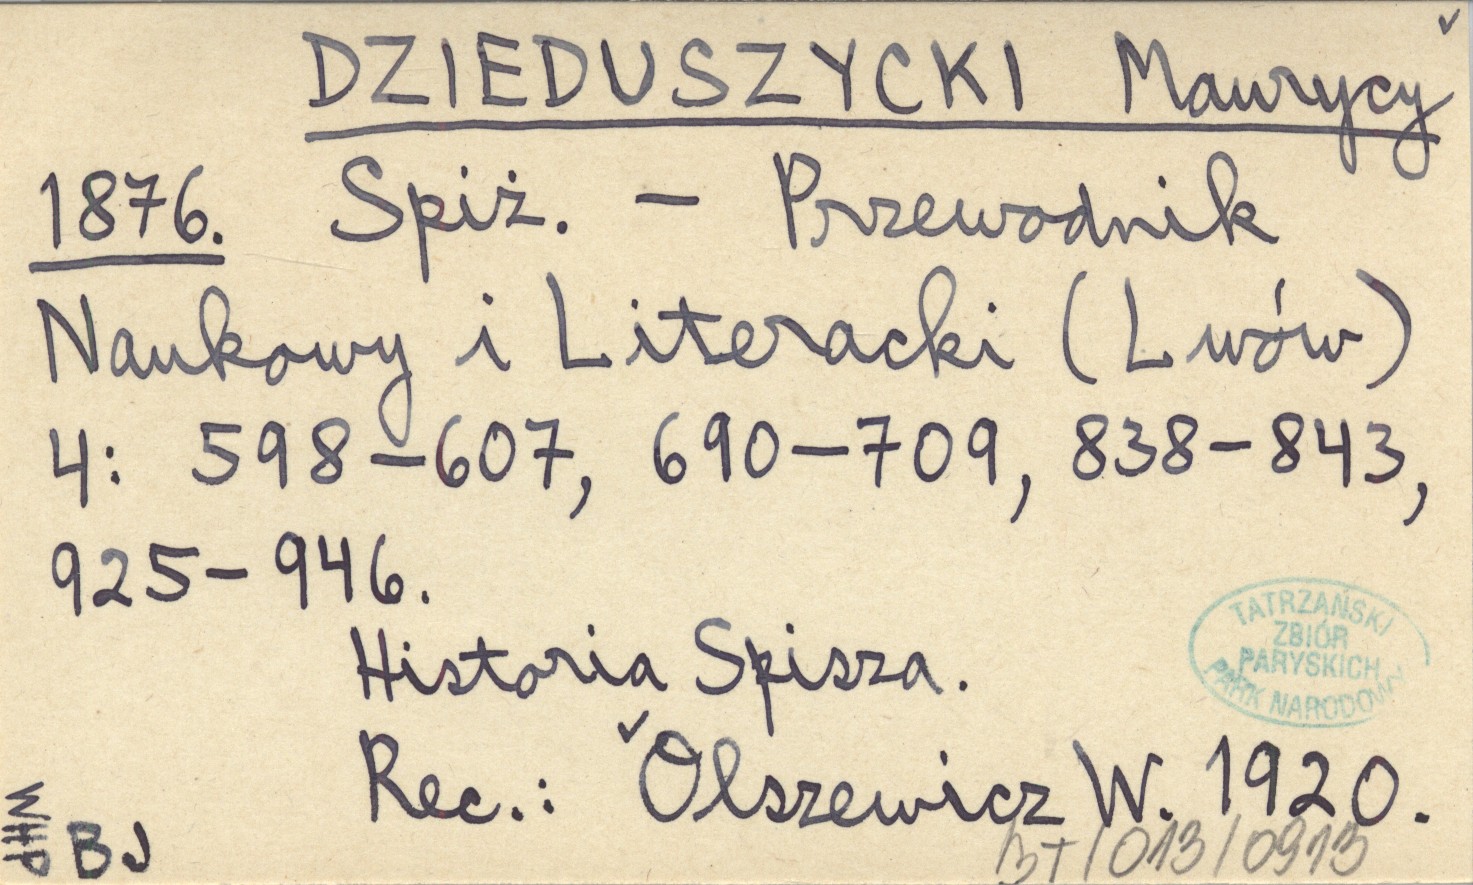 DZIEDUSZYCKI Maurycy
1876. Spiż. – Przewodnik
Naukowy i Literacki (Lwów)
4: 598–607, 690–709, 838–843,
925–946.
Historia Spisza.
Rec.: Olszewicz W. 1920.
TATRZAŃSKI
ZBIÓR
PARYSKICH
PARK NARODOWY
WHP
BJ
BT/013/0913